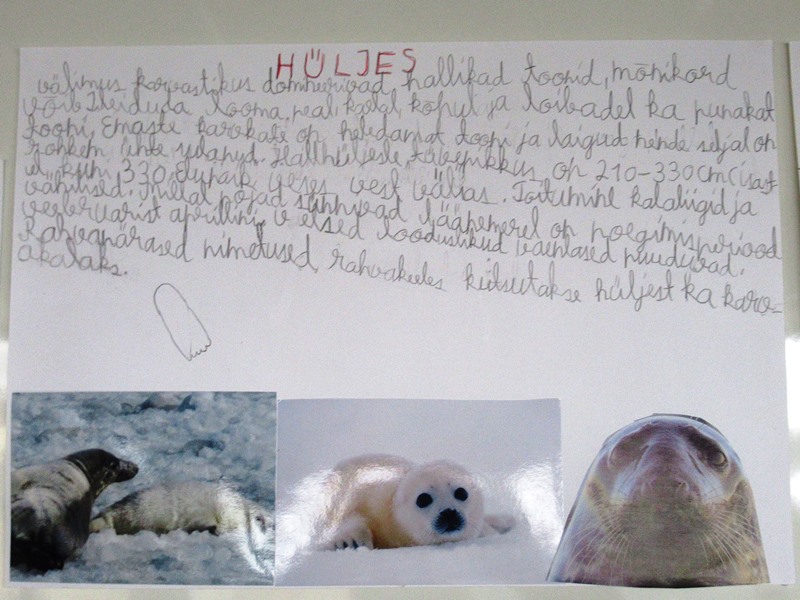 HÜLJES
välimus karvastikus domineerivad hallikad toonid, mõnikord
võib leiduda looma peal, kaelal, kõhul ja loibadel ka punakat
tooni. Emaste karvkate on heledamat tooni ja laigud nende seljal on
rohkem ühte sulanud. Hallhüljeste täispikkus on 210-330 cm (isast
el kuni 330
vähilised. Hallid pojad sünnivad läänemerel on poegimisperiood
veebruarist aprillini, v etsed looduslikud vaenlased puuduvad.
Rahvapärased nimetused, rahvakeeles kutsutakse hüljest ka karv-
akalaks.